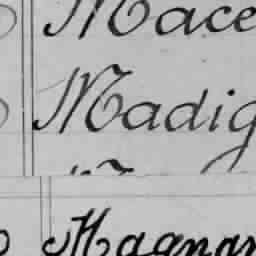 Mace
Madig
Magnan